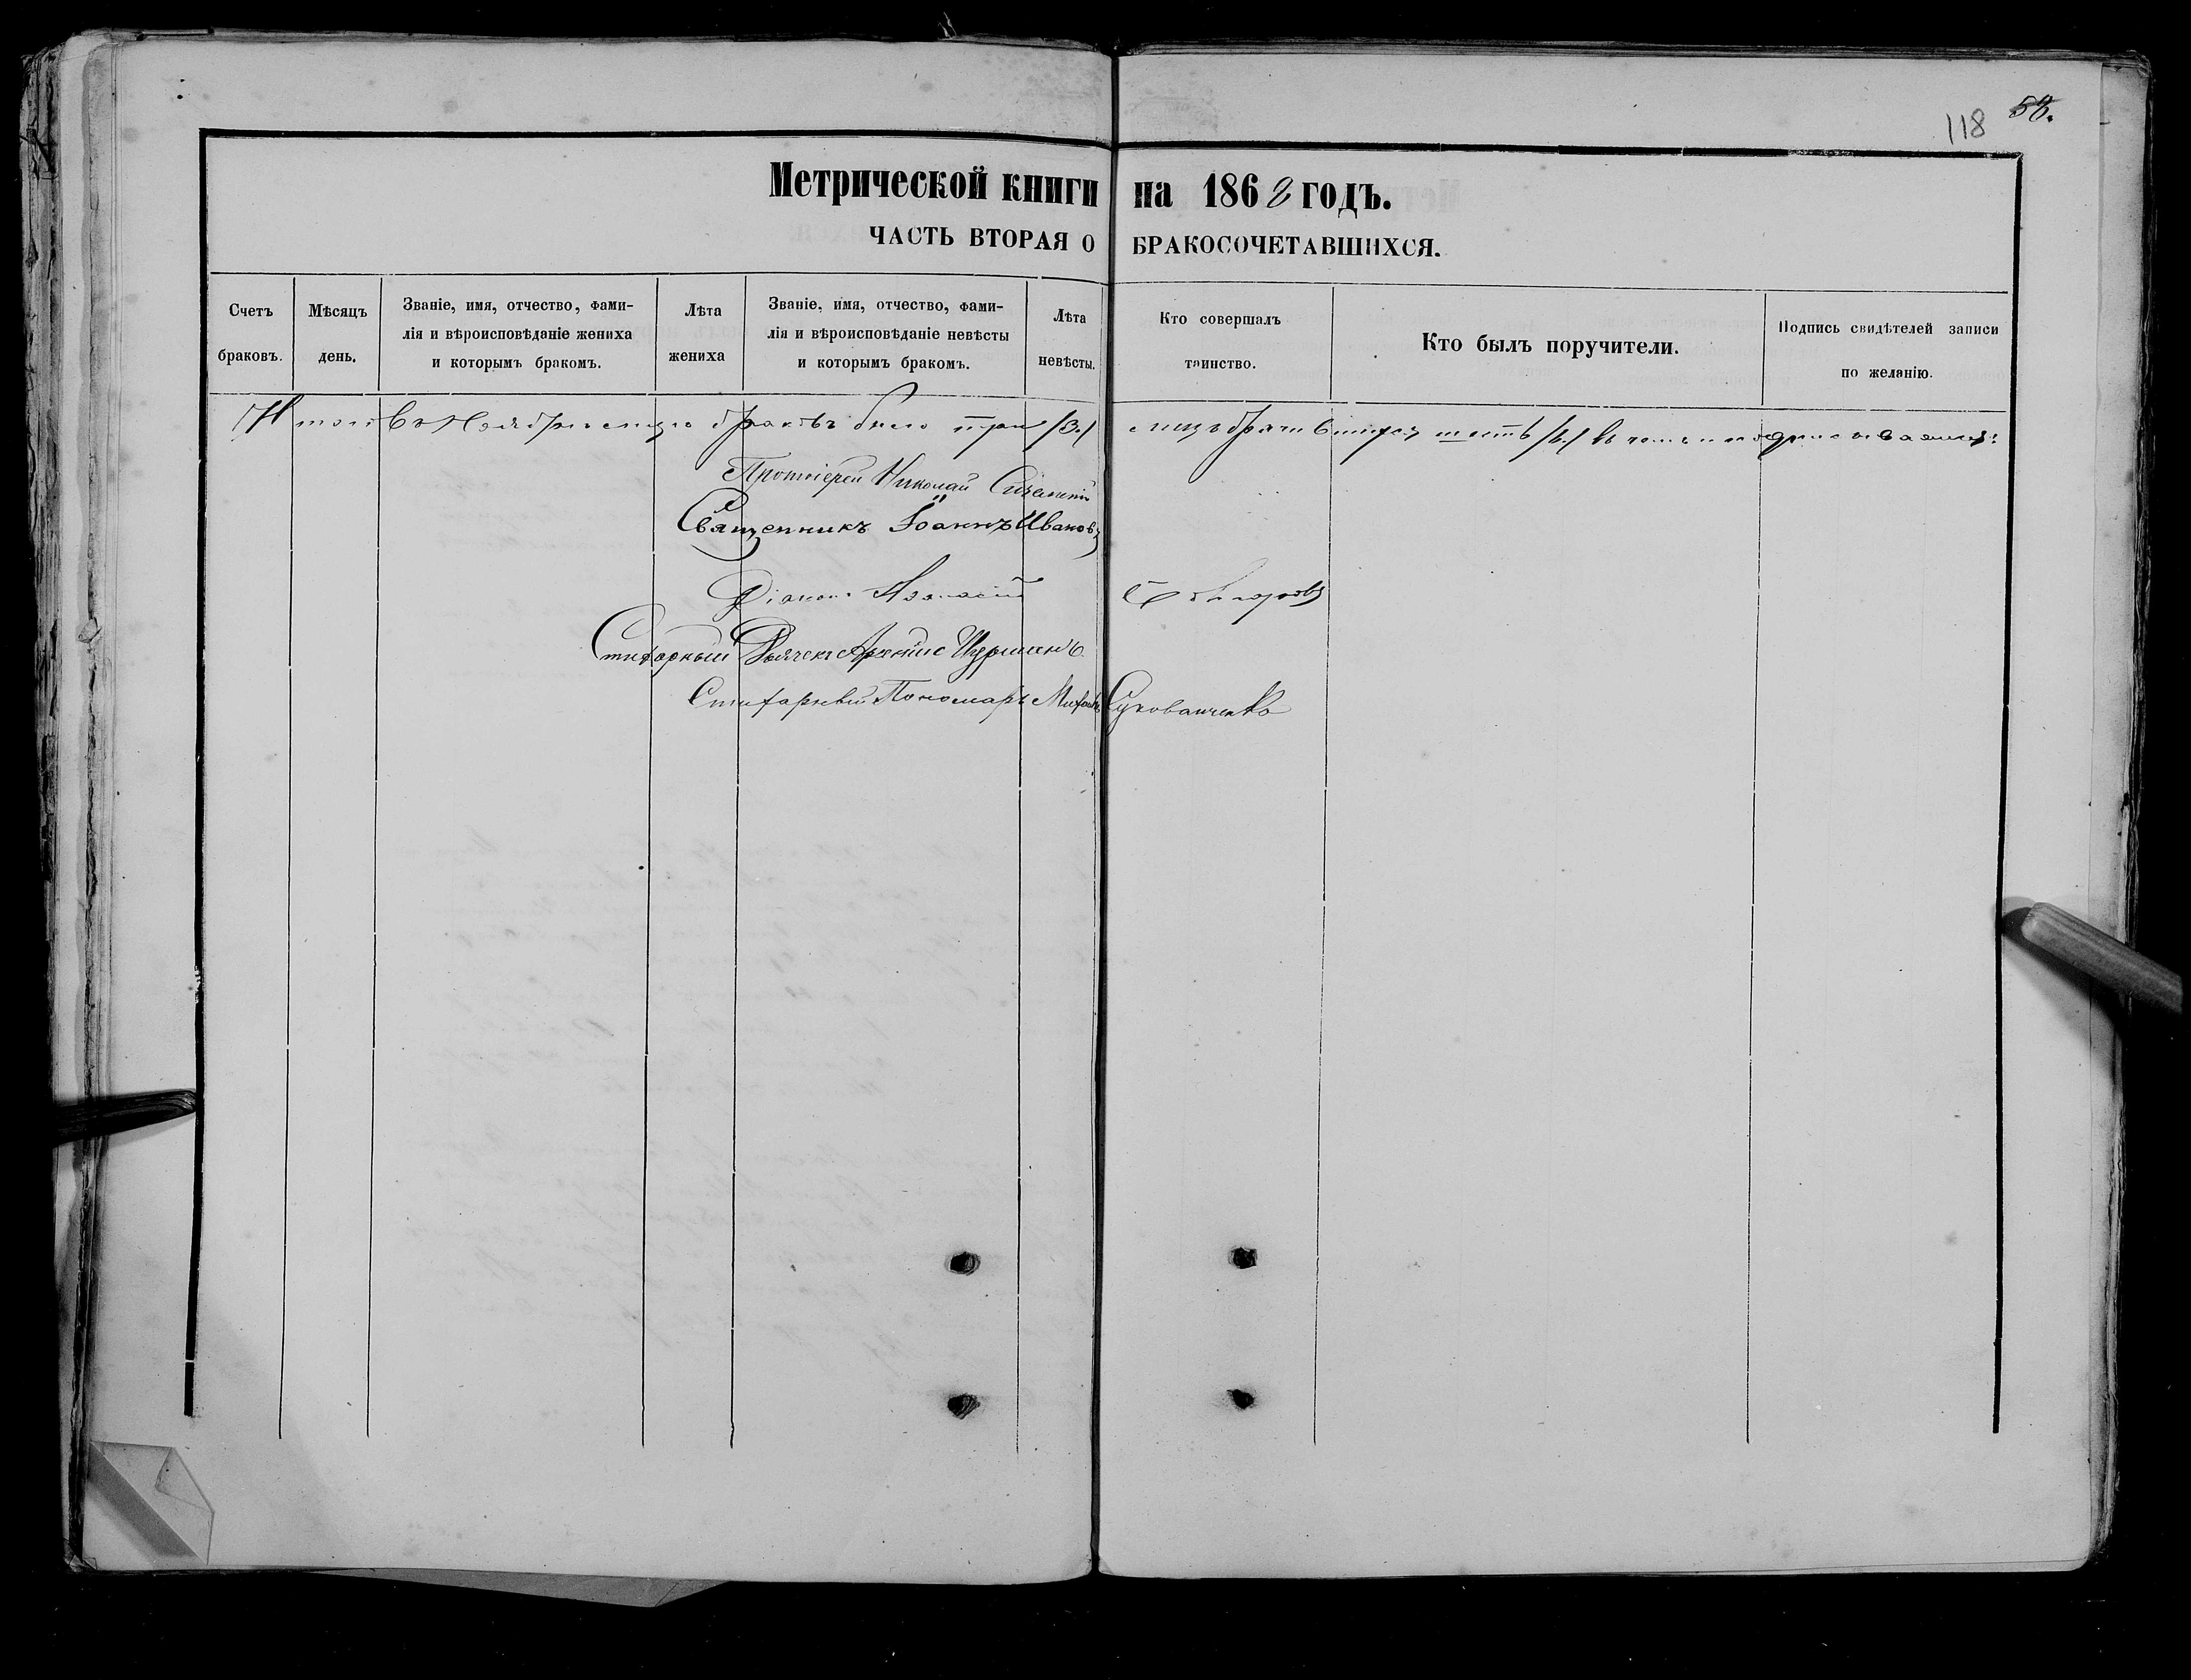 118 58.
Метрической книги на 1868 годъ.
ЧАСТЬ ВТОРАЯ О БРАКОСОЧЕТАВШИХСЯ.
Счетъ браковъ.
Мѣсяцъ день.
Званіе, имя, отчество, фами-
лія и вѣроисповѣданіе жениха
и которымъ бракомъ.
Лѣта жениха
Званіе, имя, отчество, фами-
лія и вѣроисповѣданіе невѣсты
и которымъ бракомъ.
Лѣта невѣсты.
Кто совершалъ таинство.
Кто былъ поручители.
Подпись свидѣтелей записи
по желанію.
Итого въ Ноябрѣ мцѣ браковъ было три /3./ лицъ шесть /6./ въ чемъ и подписываемся:
Протоіерей Николай
Священникъ Іоаннъ Ивановъ
Діаконъ Аѳанасій
Стихарный Дьячекъ
Стихарный Пономарь Михаилъ